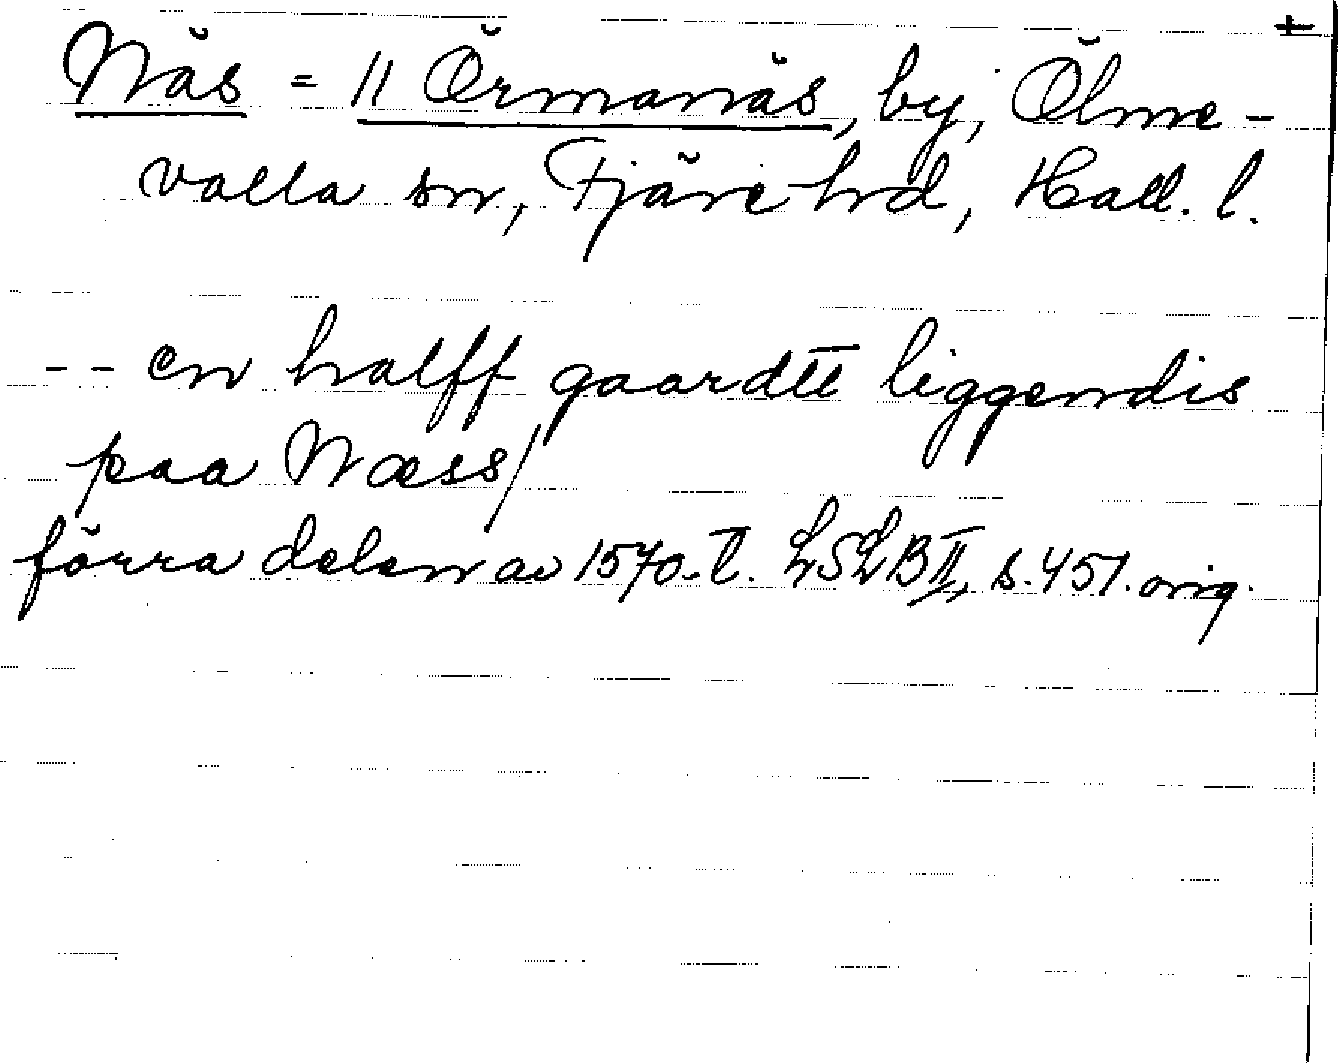 +
Näs = 11 Örmanäs, by, Ölme-
valla sn, Fjäre hd, Hall. l.
-- en halff gaardtt liggendis
paa Næss/
förra delen av 1570-t. LSLB II, s. 451. orig.